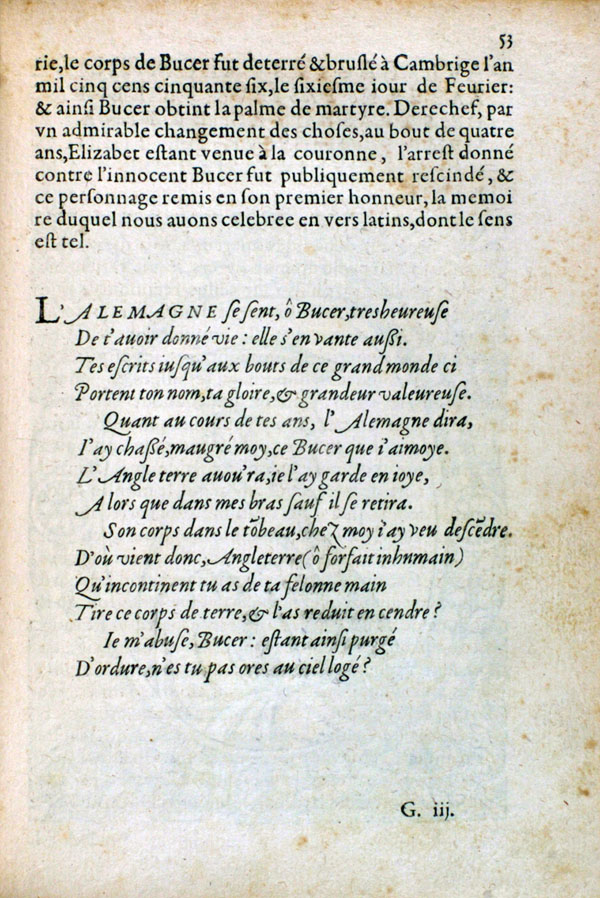 53
rie,le corps de Bucer fut deterré &bruſlé à Cambrige l'an
mil cinq cens cinquante ſix,le ſixieſme iour de Feurier:
& ainſi Bucer obtint la palme de martyre. Derechef, par
vn admirable changement des choſes,au bout de quatre
ans,Elizabet eſtant venue à la couronne, l'arreſt donné
contre l'innocent Bucer fut publiquement reſcindé, &
ce perſonnage remis en ſon premier honneur, la memoi
re duquel nous auons celebree en vers latins,dont le ſens
eſt tel.
L'ALEMAGNE ſe ſent, ô Bucer,tresheureuſe
De t'auoir donné vie : elle s'en vante auſſi.
Tes eſcrits iuſqu'aux bouts de ce grand monde ci
Portent ton nom,ta gloire,& grandeur valeureuſe.
Quant au cours de tes ans, l'Alemagne dira,
I'ay chaſſé,maugré moy,ce Bucer que i'aimoye.
L'Angleterre auou'ra,ie l'ay garde en ioye,
Alors que dans mes bras ſauf il ſe retira.
Son corps dans le tõbeau,chez moy i'ay veu deſcẽdre.
D'où vient donc,Angleterre(ô forfait inhumain)
Qu'incontinent tu as de ta felonne main
Tire ce corps de terre,& l'as reduit en cendre?
Ie m'abuſe, Bucer : eſtant ainſi purgé
D'ordure,n'es tu pas ores au ciel logé?
G. iij.